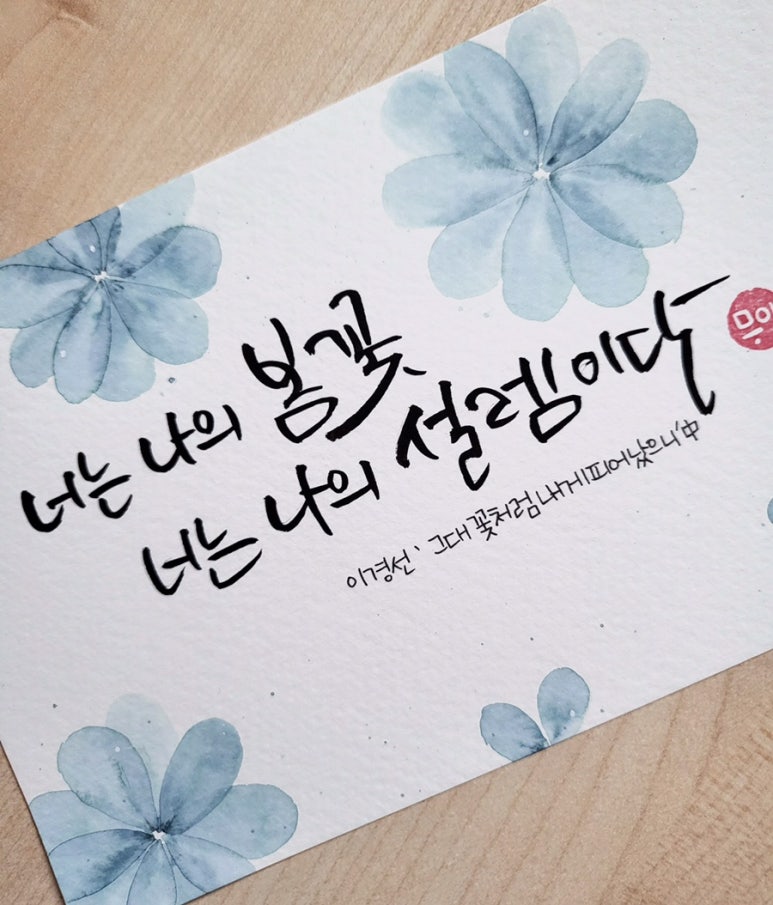 너는 나의 봄꽃
너는 나의 설렘이다
이경선 '그대 꽃처럼 내게 피어났으니' 中